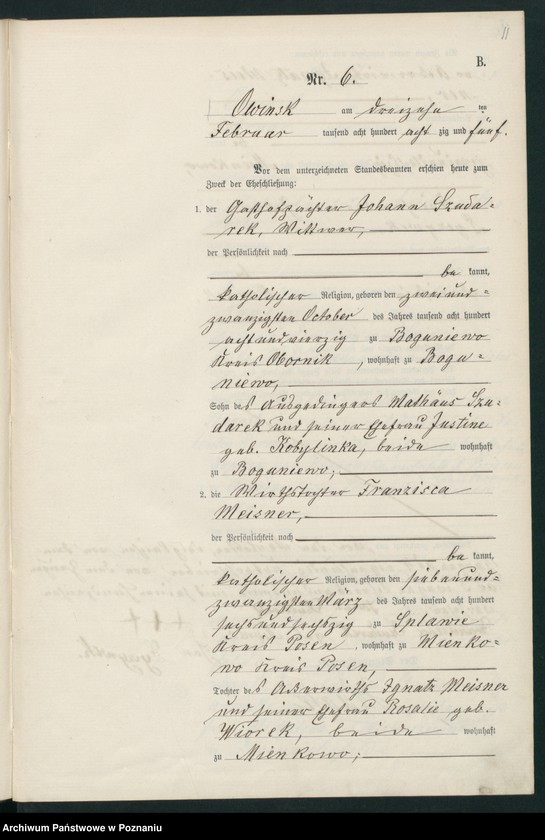 11
B.
Nr. 6.
Owinsk am dreizehn ten
Februar tausend acht hundert acht zig und fünf.
Vor dem unterzeichneten Standesbeamten erschien heute zum
Zweck der Eheschließung:
1. der Gasthofpächter Johann Szuda-
rek, Wittwer,
der Persönlichkeit nach
be kannt,
katholischer Religion, geboren den zwei und-
zwanzigsten October des Jahres tausend acht hundert
acht und vierzig zu Boguniewo
Kreis Obornik, wohnhaft zu Bogu-
niewo,
Sohn des Ausgedingers Mathäus Szu-
darek und seiner Ehefrau Justine
geb. Kobylinka, beide wohnhaft
zu Boguniewo;
2. die Wirthstochter Franzisca
Meisner,
der Persönlichkeit nach
be kannt,
katholischer Religion, geboren den sieben und-
zwanzigsten März des Jahres tausend acht hundert
sechs und sechszig zu Splawie
Kreis Posen, wohnhaft zu Mienko-
wo Kreis Posen,
Tochter des Ackerwirths Ignatz Meisner
und seiner Ehefrau Rosalie geb.
Wiorek, beide wohnhaft
zu Mienkowo;
Archiwum Państwowe w Poznaniu